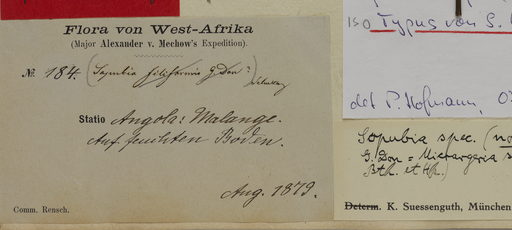 Flora von West-Afrika
(Major Alexander v. Mechow's Expedition).
№ 184. (Sopubia filiformis G. Don?)
Statio Angola: Malange.
Auf feuchten Boden.
Aug. 1879.
Comm. Rensch.
Iso Typus von S.
det P. Hofmann, 0
Sopubia spec. (no
G. Don = Micrargeria s
Bth. et Hk.)
Determ. K. Suessenguth, München